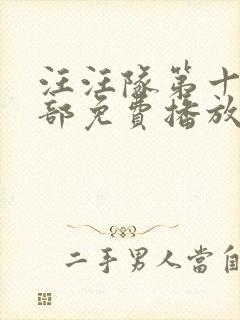 汪汪隊第十
部免費播放
二手男人當自